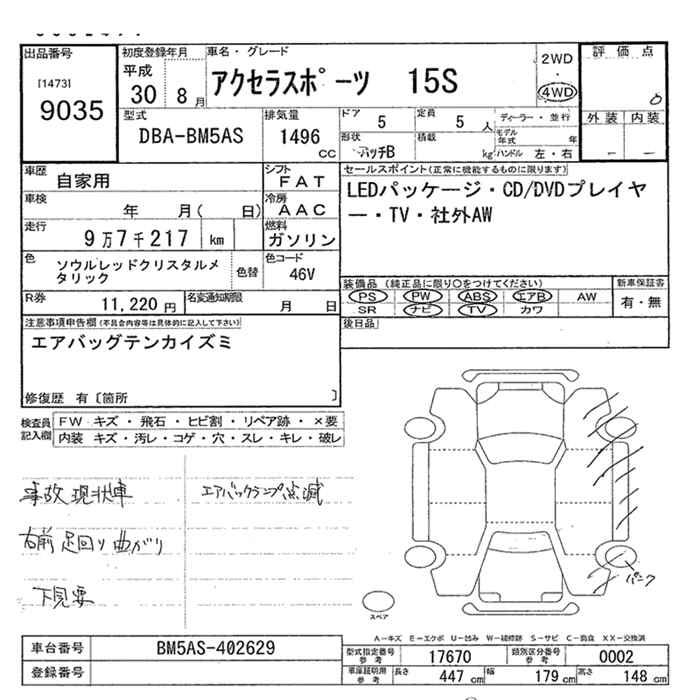 出品番号
[1473]
9035
初度登録年月
平成
30 8月
車名・グレード
アクセラスポーツ 15S
2WD
4WD
評価点
0
外装 内装
－ －
型式
DBA-BM5AS
排気量
1496
cc
ドア
5
定員
5 人
ディーラー・並行
形状
ハッチB
積載
kg
モデル年式 年
ハンドル 左・右
車歴
自家用
シフト
FAT
車検
年 月( 日)
冷房
AAC
走行
9万7千217 km
燃料
ガソリン
色
ソウルレッドクリスタルメタリック
色替
色コード
46V
R券
11,220 円
名変通知期限
月 日
セールスポイント(正常に機能するものに限ります)
LEDパッケージ・CD/DVDプレイヤ
ー・TV・社外AW
装備品 (純正品に限り○をつけてください)
PS PW ABS エアB AW
SR ナビ TV カワ
新車保証書
有・無
後日品
注意事項申告欄(不具合内容等は具体的に記入して下さい)
エアバッグテンカイズミ
修復歴 有〔箇所 〕
検査員記入欄
FW キズ・飛石・ヒビ割・リペア跡・×要
内装 キズ・汚レ・コゲ・穴・スレ・キレ・破レ
事故現状車
エアバックランプ点滅
右前足回り曲がり
下見要
パンク
スペア
A－キズ E－エクボ U－凹み W－補修跡 S－サビ C－腐食 XX－交換済
車台番号
BM5AS-402629
登録番号
型式指定番号 参考
17670
類別区分番号 参考
0002
車庫証明用 参考
長さ 447 cm
幅 179 cm
高さ 148 cm